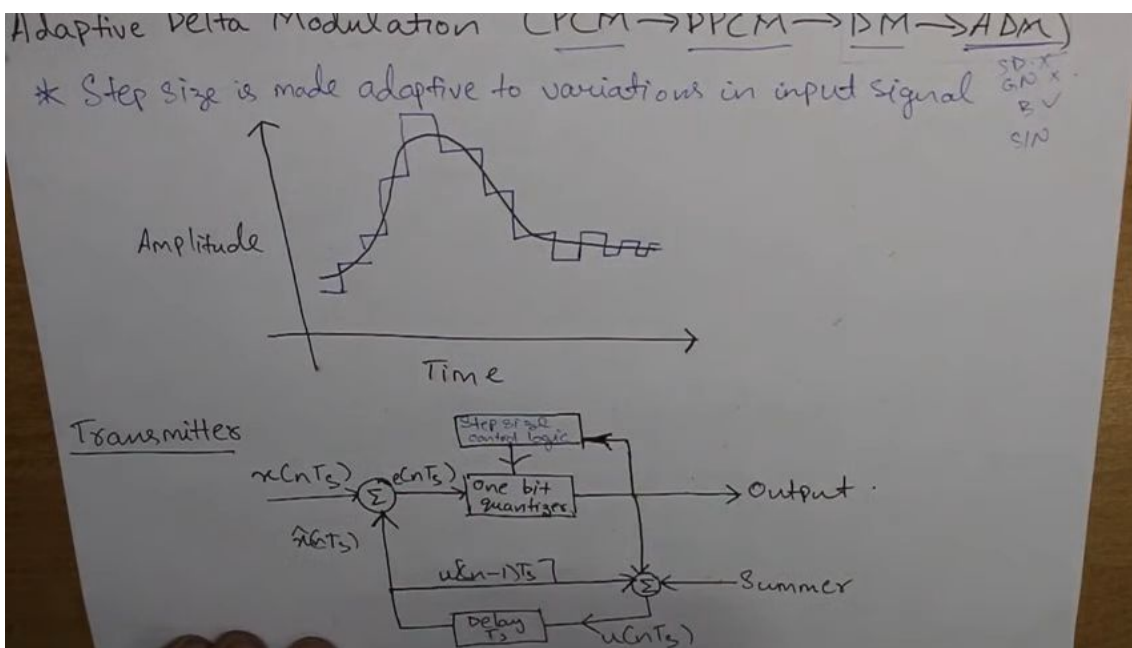 Adaptive Delta Modulation (PCM→DPCM→DM→ADM)
* Step size is made adaptive to variations in input signal
SD x
GN x
B ✓
S/N
Amplitude
Time
Transmitter
Step size
control logic
x(nTs)
Σ
e(nTs)
One bit
quantizer
Output
x̂(nTs)
u[(n-1)Ts]
Σ
Summer
Delay
Ts
u(nTs)